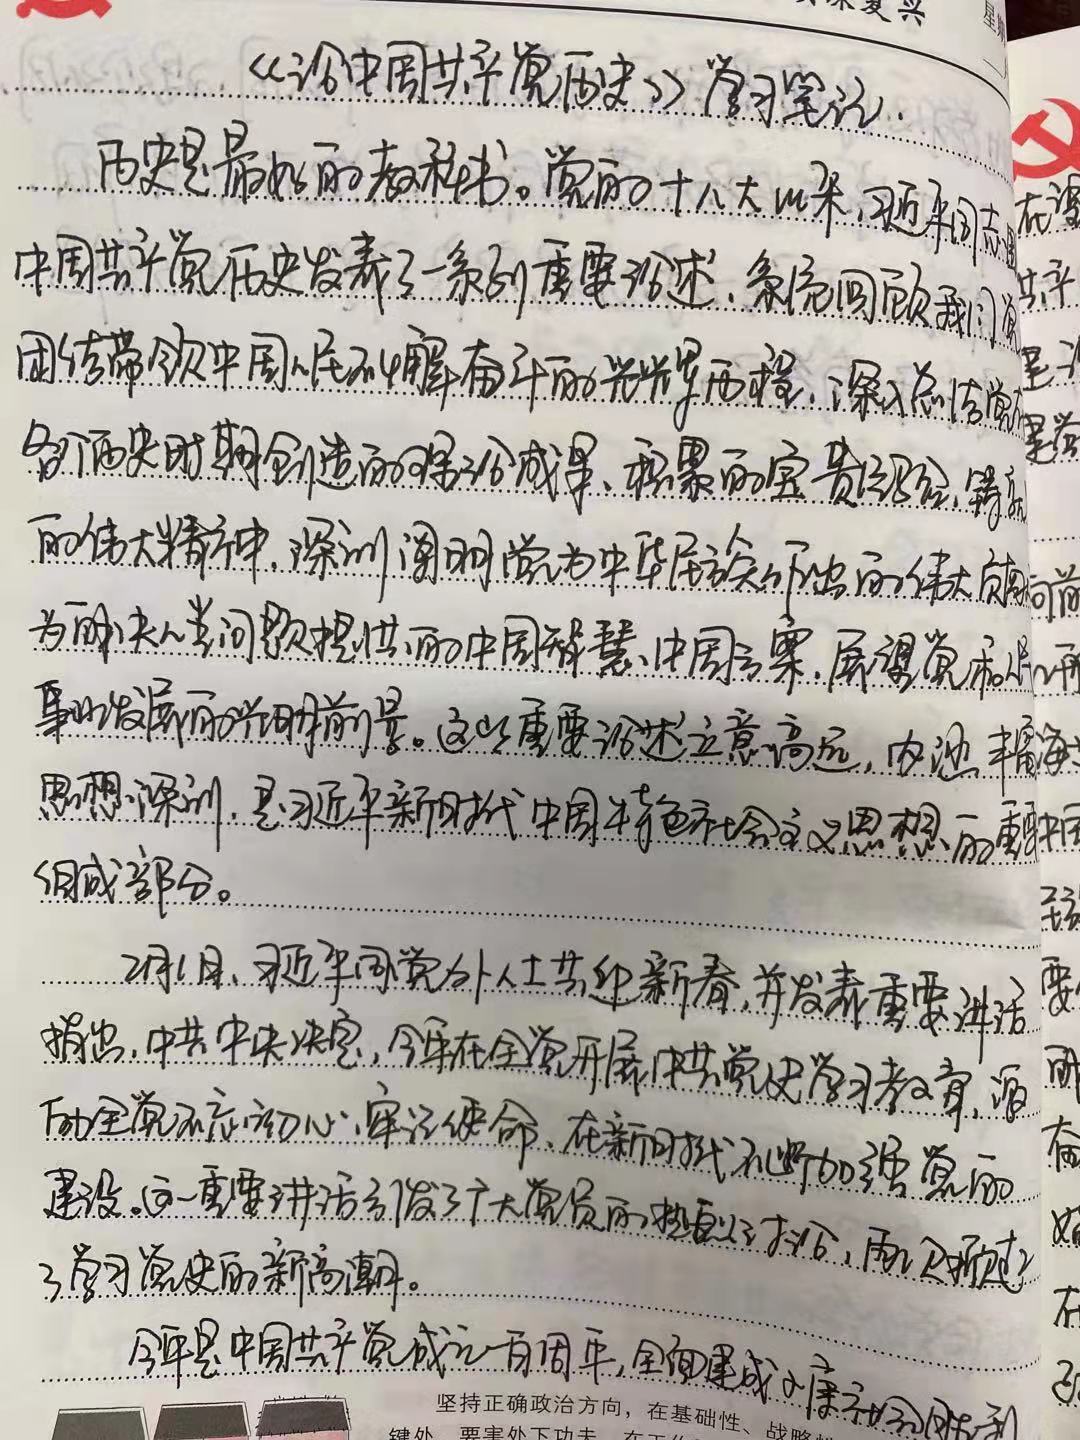 复兴
《论中国共产党历史》学习笔记.
历史是最好的教科书。党的十八大以来,习近平同志围
中国共产党历史发表了一系列重要论述,系统回顾我们党
团结带领中国人民不懈奋斗的光辉历程,深入总结党在
各个历史时期创造的理论成果、积累的宝贵经验、铸就
的伟大精神,深刻阐明党为中华民族作出的伟大贡献
为解决人类问题提供的中国智慧、中国方案,展望党和人民
事业发展的光明前景。这些重要论述立意高远,内涵丰富
思想深刻,是习近平新时代中国特色社会主义思想的重要
组成部分。
2月1日,习近平同党外人士共迎新春,并发表重要讲话
指出,中共中央决定,今年在全党开展中共党史学习教育,激
励全党不忘初心、牢记使命,在新时代不断加强党的
建设。这一重要讲话引发了广大党员的热烈讨论,再次掀起
了学习党史的新高潮。
今年是中国共产党成立一百周年,全面建成小康社会胜利
坚持正确政治方向,在基础性、战略性
键处、要害处下功夫